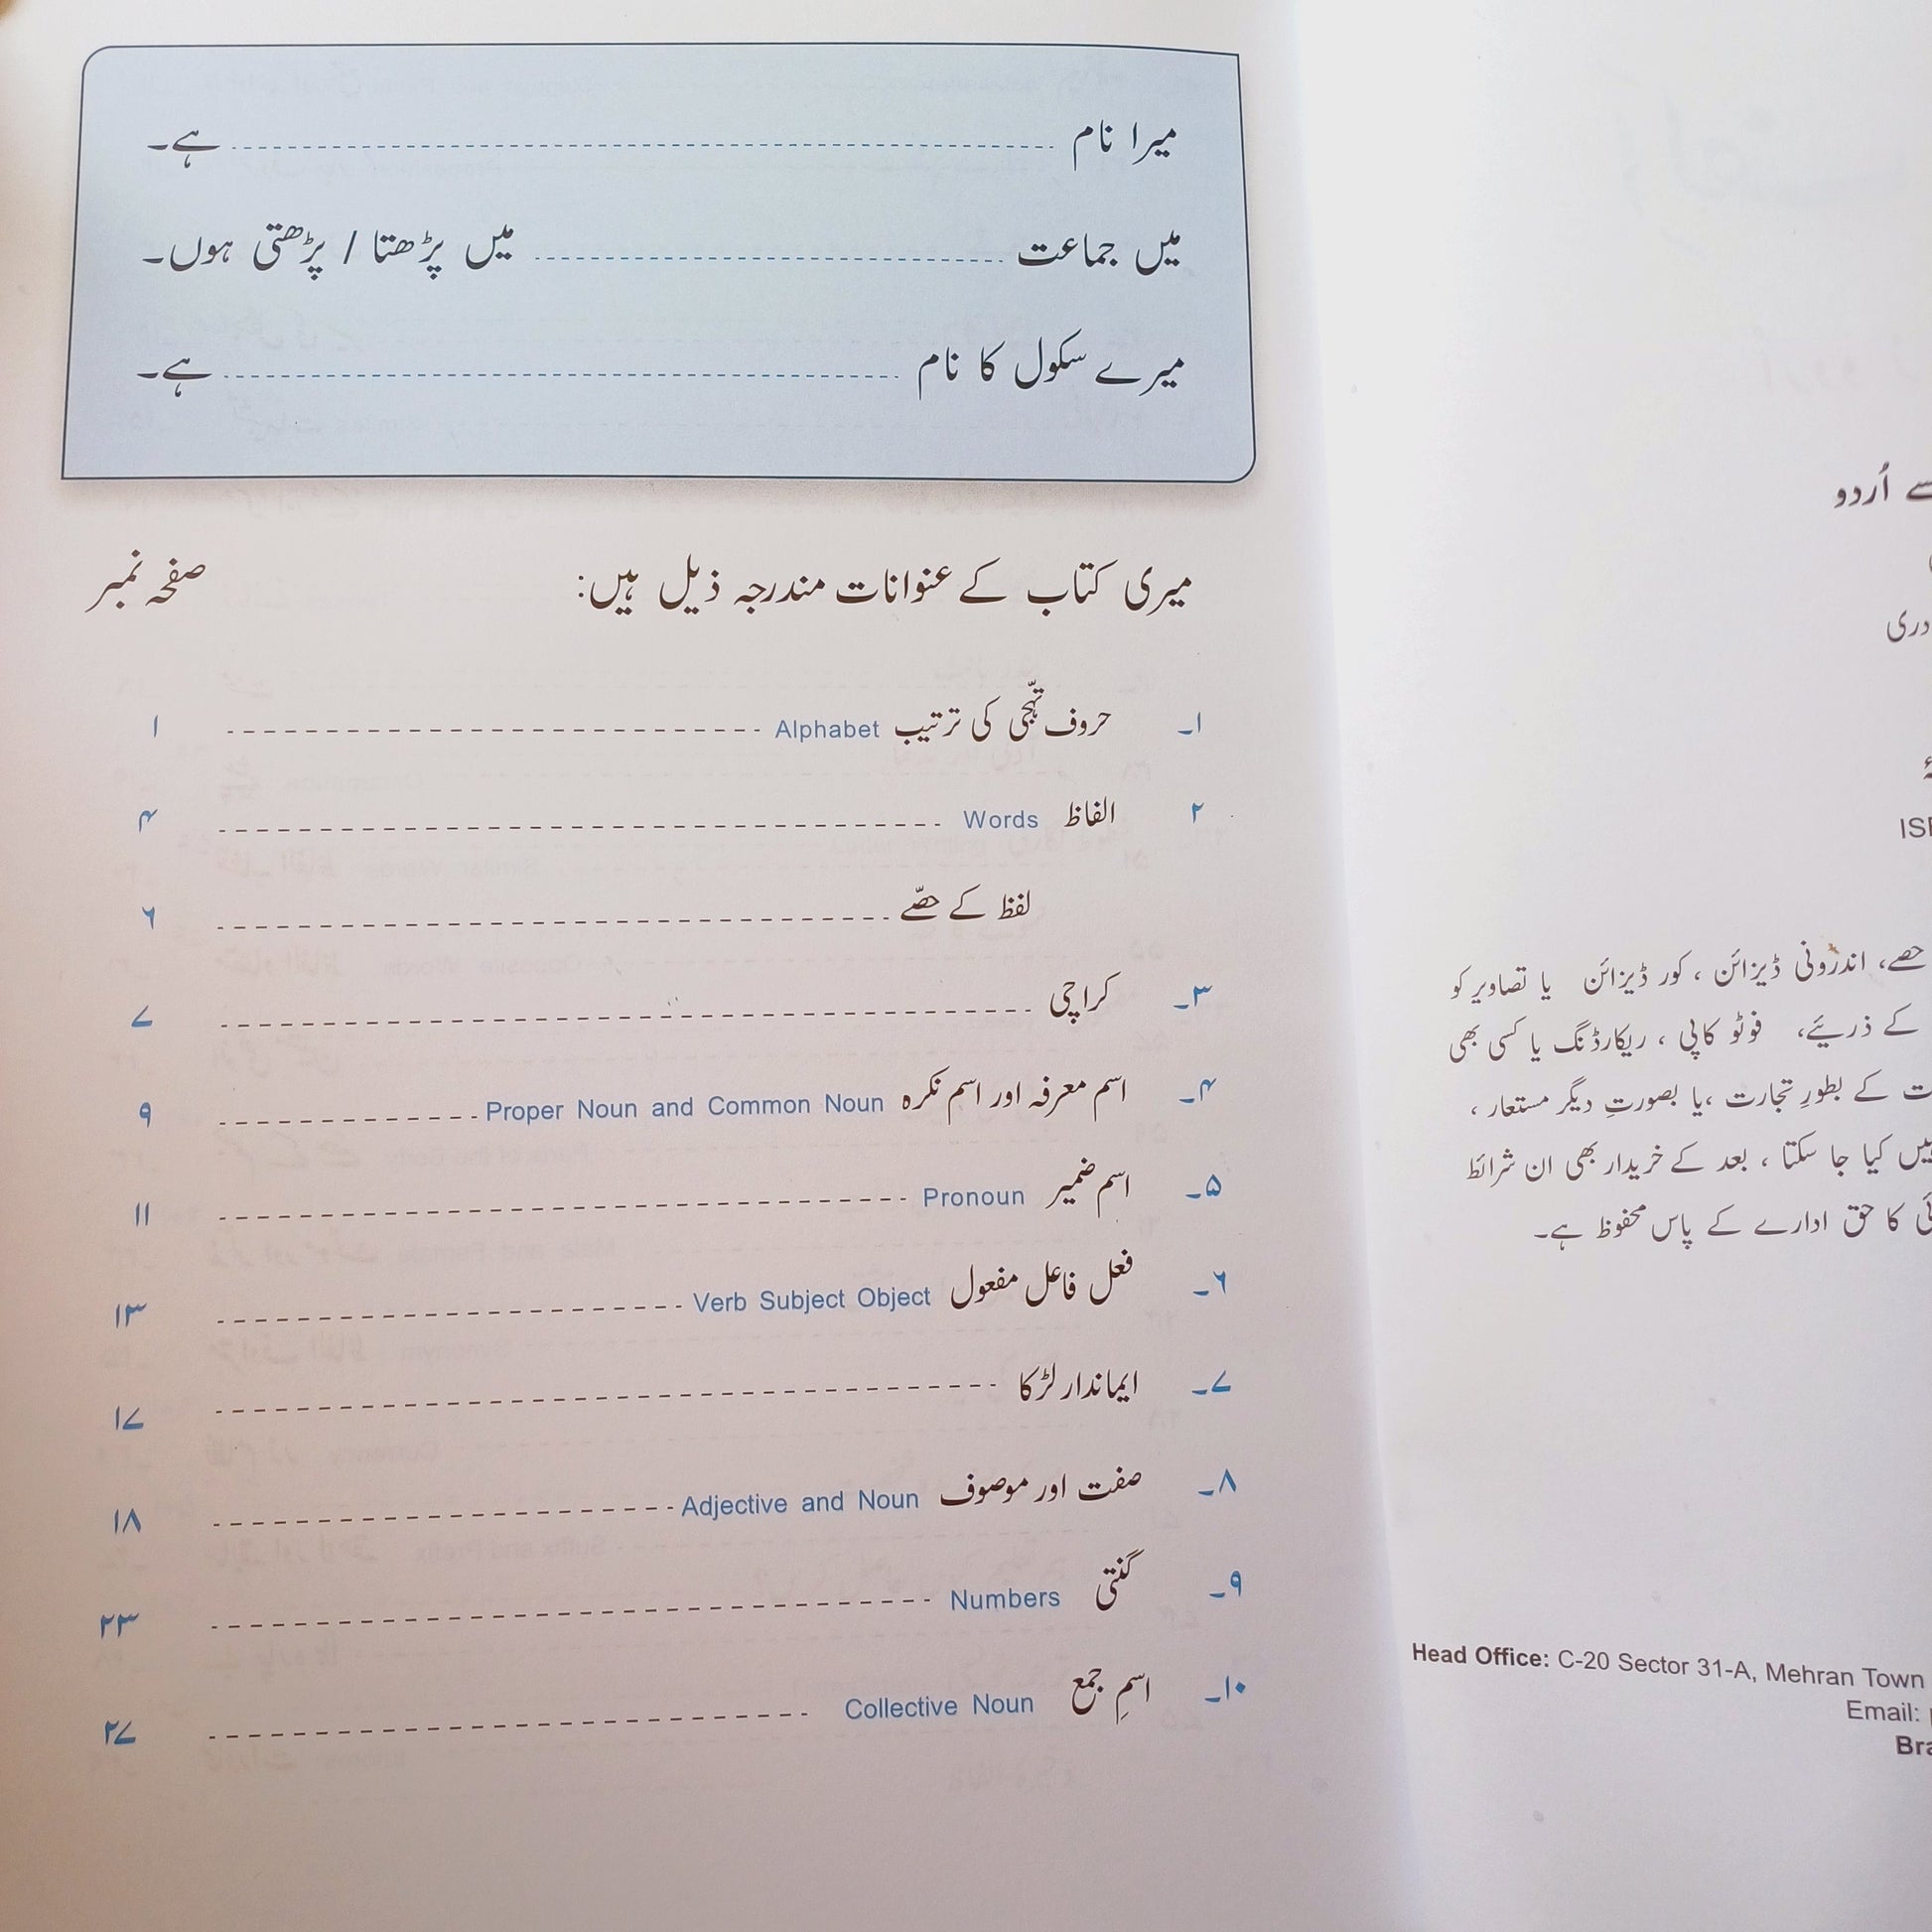 میرا نام ہے۔
میں جماعت میں پڑھتا / پڑھتی ہوں۔
میرے سکول کا نام ہے۔
میری کتاب کے عنوانات مندرجہ ذیل ہیں: صفحہ نمبر
۱۔ حروف تہجّی کی ترتیب Alphabet ۱
۲ الفاظ Words ۴
لفظ کے حصّے ۶
۳۔ کراچی ۷
۴۔ اسم معرفہ اور اسم نکرہ Proper Noun and Common Noun ۹
۵۔ اسم ضمیر Pronoun ۱۱
۶۔ فعل فاعل مفعول Verb Subject Object ۱۳
۷۔ ایماندار لڑکا ۱۷
۸۔ صفت اور موصوف Adjective and Noun ۱۸
۹۔ گنتی Numbers ۲۳
۱۰۔ اسمِ جمع Collective Noun ۲۷
سے اُردو
حصے، اندرونی ڈیزائن ، کور ڈیزائن یا تصاویر کو
کے ذریئے، فوٹو کاپی ، ریکارڈنگ یا کسی بھی
کے بطورِ تجارت ،یا بصورتِ دیگر مستعار ،
کیا جا سکتا ، بعد کے خریدار بھی ان شرائط
کا حق ادارے کے پاس محفوظ ہے۔
Head Office: C-20 Sector 31-A, Mehran Town
Email: